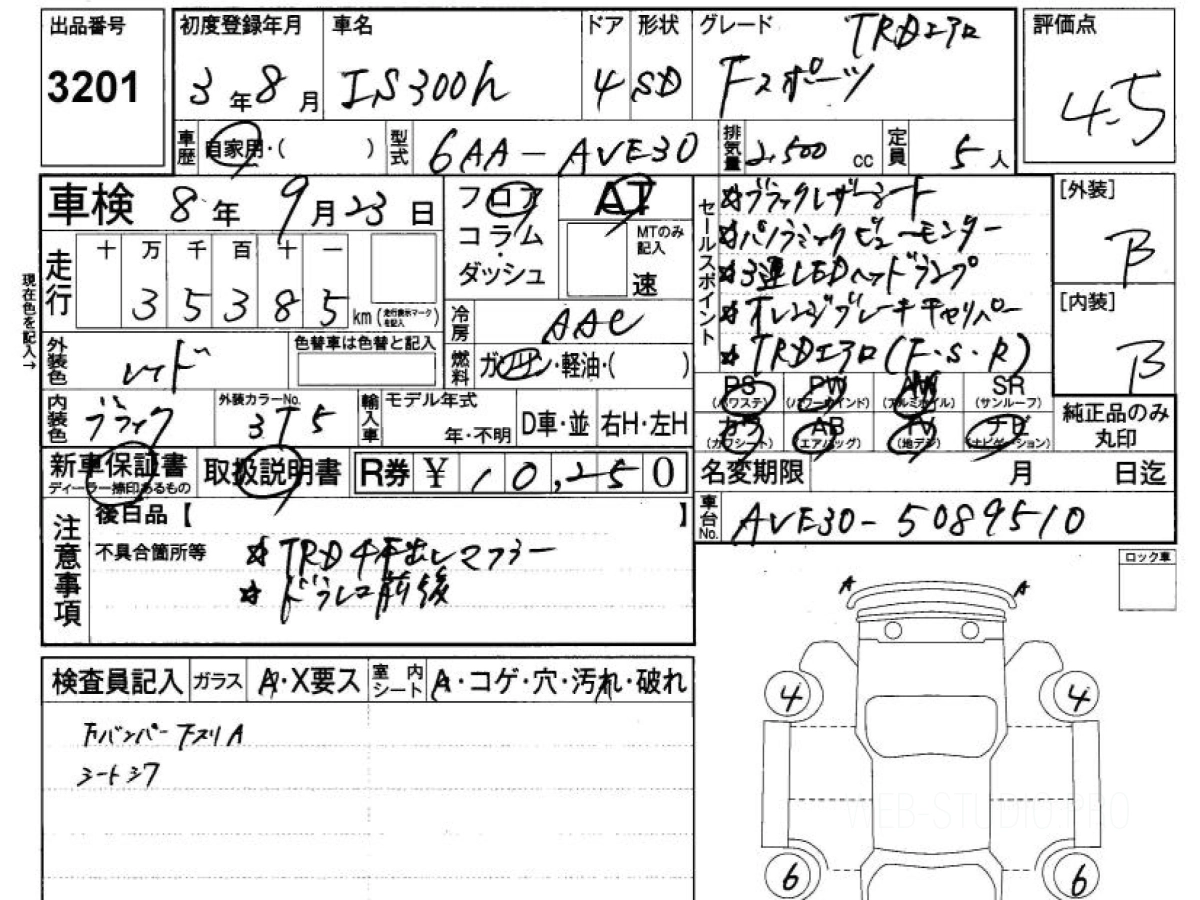 出品番号
3201
初度登録年月
3年8月
車名
IS300h
ドア
4
形状
SD
グレード
TRDエアロ
Fスポーツ
評価点
4.5
車歴
自家用・( )
型式
6AA-AVE30
排気量
2,500cc
定員
5人
車検
8年9月23日
走行
十 万 千 百 十 一
3 5 3 8 5
km(走行表示マークを記入)
現在色を記入→
フロア
コラム
・
ダッシュ
AT
MTのみ記入
速
セールスポイント
☆ブラックレザーシート
☆パノラミックビューモニター
☆3連LEDヘッドランプ
☆オレンジブレーキキャリパー
☆TRDエアロ(F・S・R)
[外装]
B
[内装]
B
冷房
AAC
燃料
ガソリン・軽油・( )
外装色
レッド
色替車は色替と記入
内装色
ブラック
外装カラーNo.
3T5
輸入車
モデル年式
年・不明
D車・並
右H・左H
PS
(パワステ)
PW
(パワーウインド)
AW
(アルミホイル)
SR
(サンルーフ)
カワ
(カワシート)
AB
(エアバッグ)
TV
(地デジ)
ナビ
(ナビゲーション)
純正品のみ
丸印
新車保証書
ディーラー捺印あるもの
取扱説明書
R券 ¥10,250
名変期限
月 日迄
車台No.
AVE30-5089510
注意事項
後日品【 】
不具合箇所等
☆TRD4本出しマフラー
☆ドラレコ前後
ロック車
検査員記入
ガラス
A・X要ス
室内シート
A・コゲ・穴・汚れ・破れ
FバンパーFスリA
シートシワ
A A
4 4
6 6
WEB-STUDIO.PRO